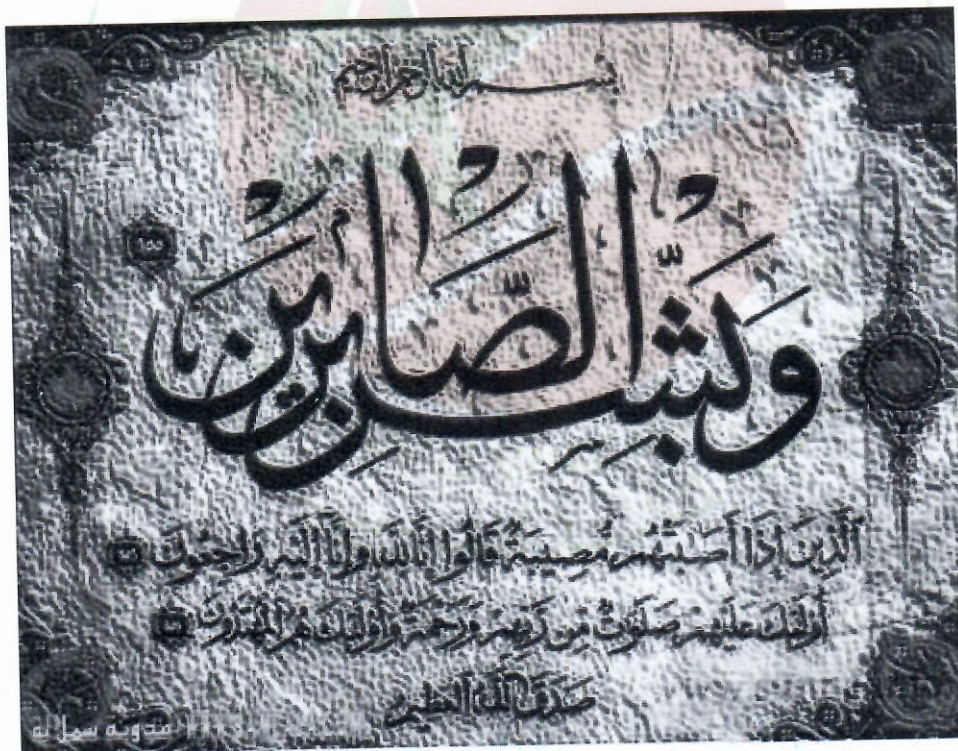 بسم الله الرحمن الرحيم
وَبَشِّرِ الصَّابِرِينَ ١٥٥
ٱلَّذِينَ إِذَا أَصَٰبَتْهُم مُّصِيبَةٌ قَالُوا إِنَّا لِلَّهِ وَإِنَّا إِلَيْهِ رَٰجِعُونَ ١٥٦
أُو۟لَٰٓئِكَ عَلَيْهِمْ صَلَوَٰتٌ مِّن رَّبِّهِمْ وَرَحْمَةٌ وَأُو۟لَٰٓئِكَ هُمُ ٱلْمُهْتَدُونَ ١٥٧
صَدَقَ ٱللَّهُ ٱلْعَظِيمُ
مدونة